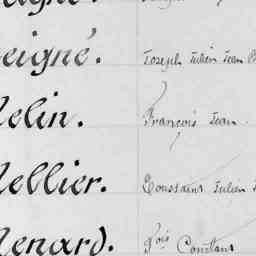 eigné. Joseph Julien Jean
elin. François Jean
ellier. Toussaint Julien
enard. Fois Constant